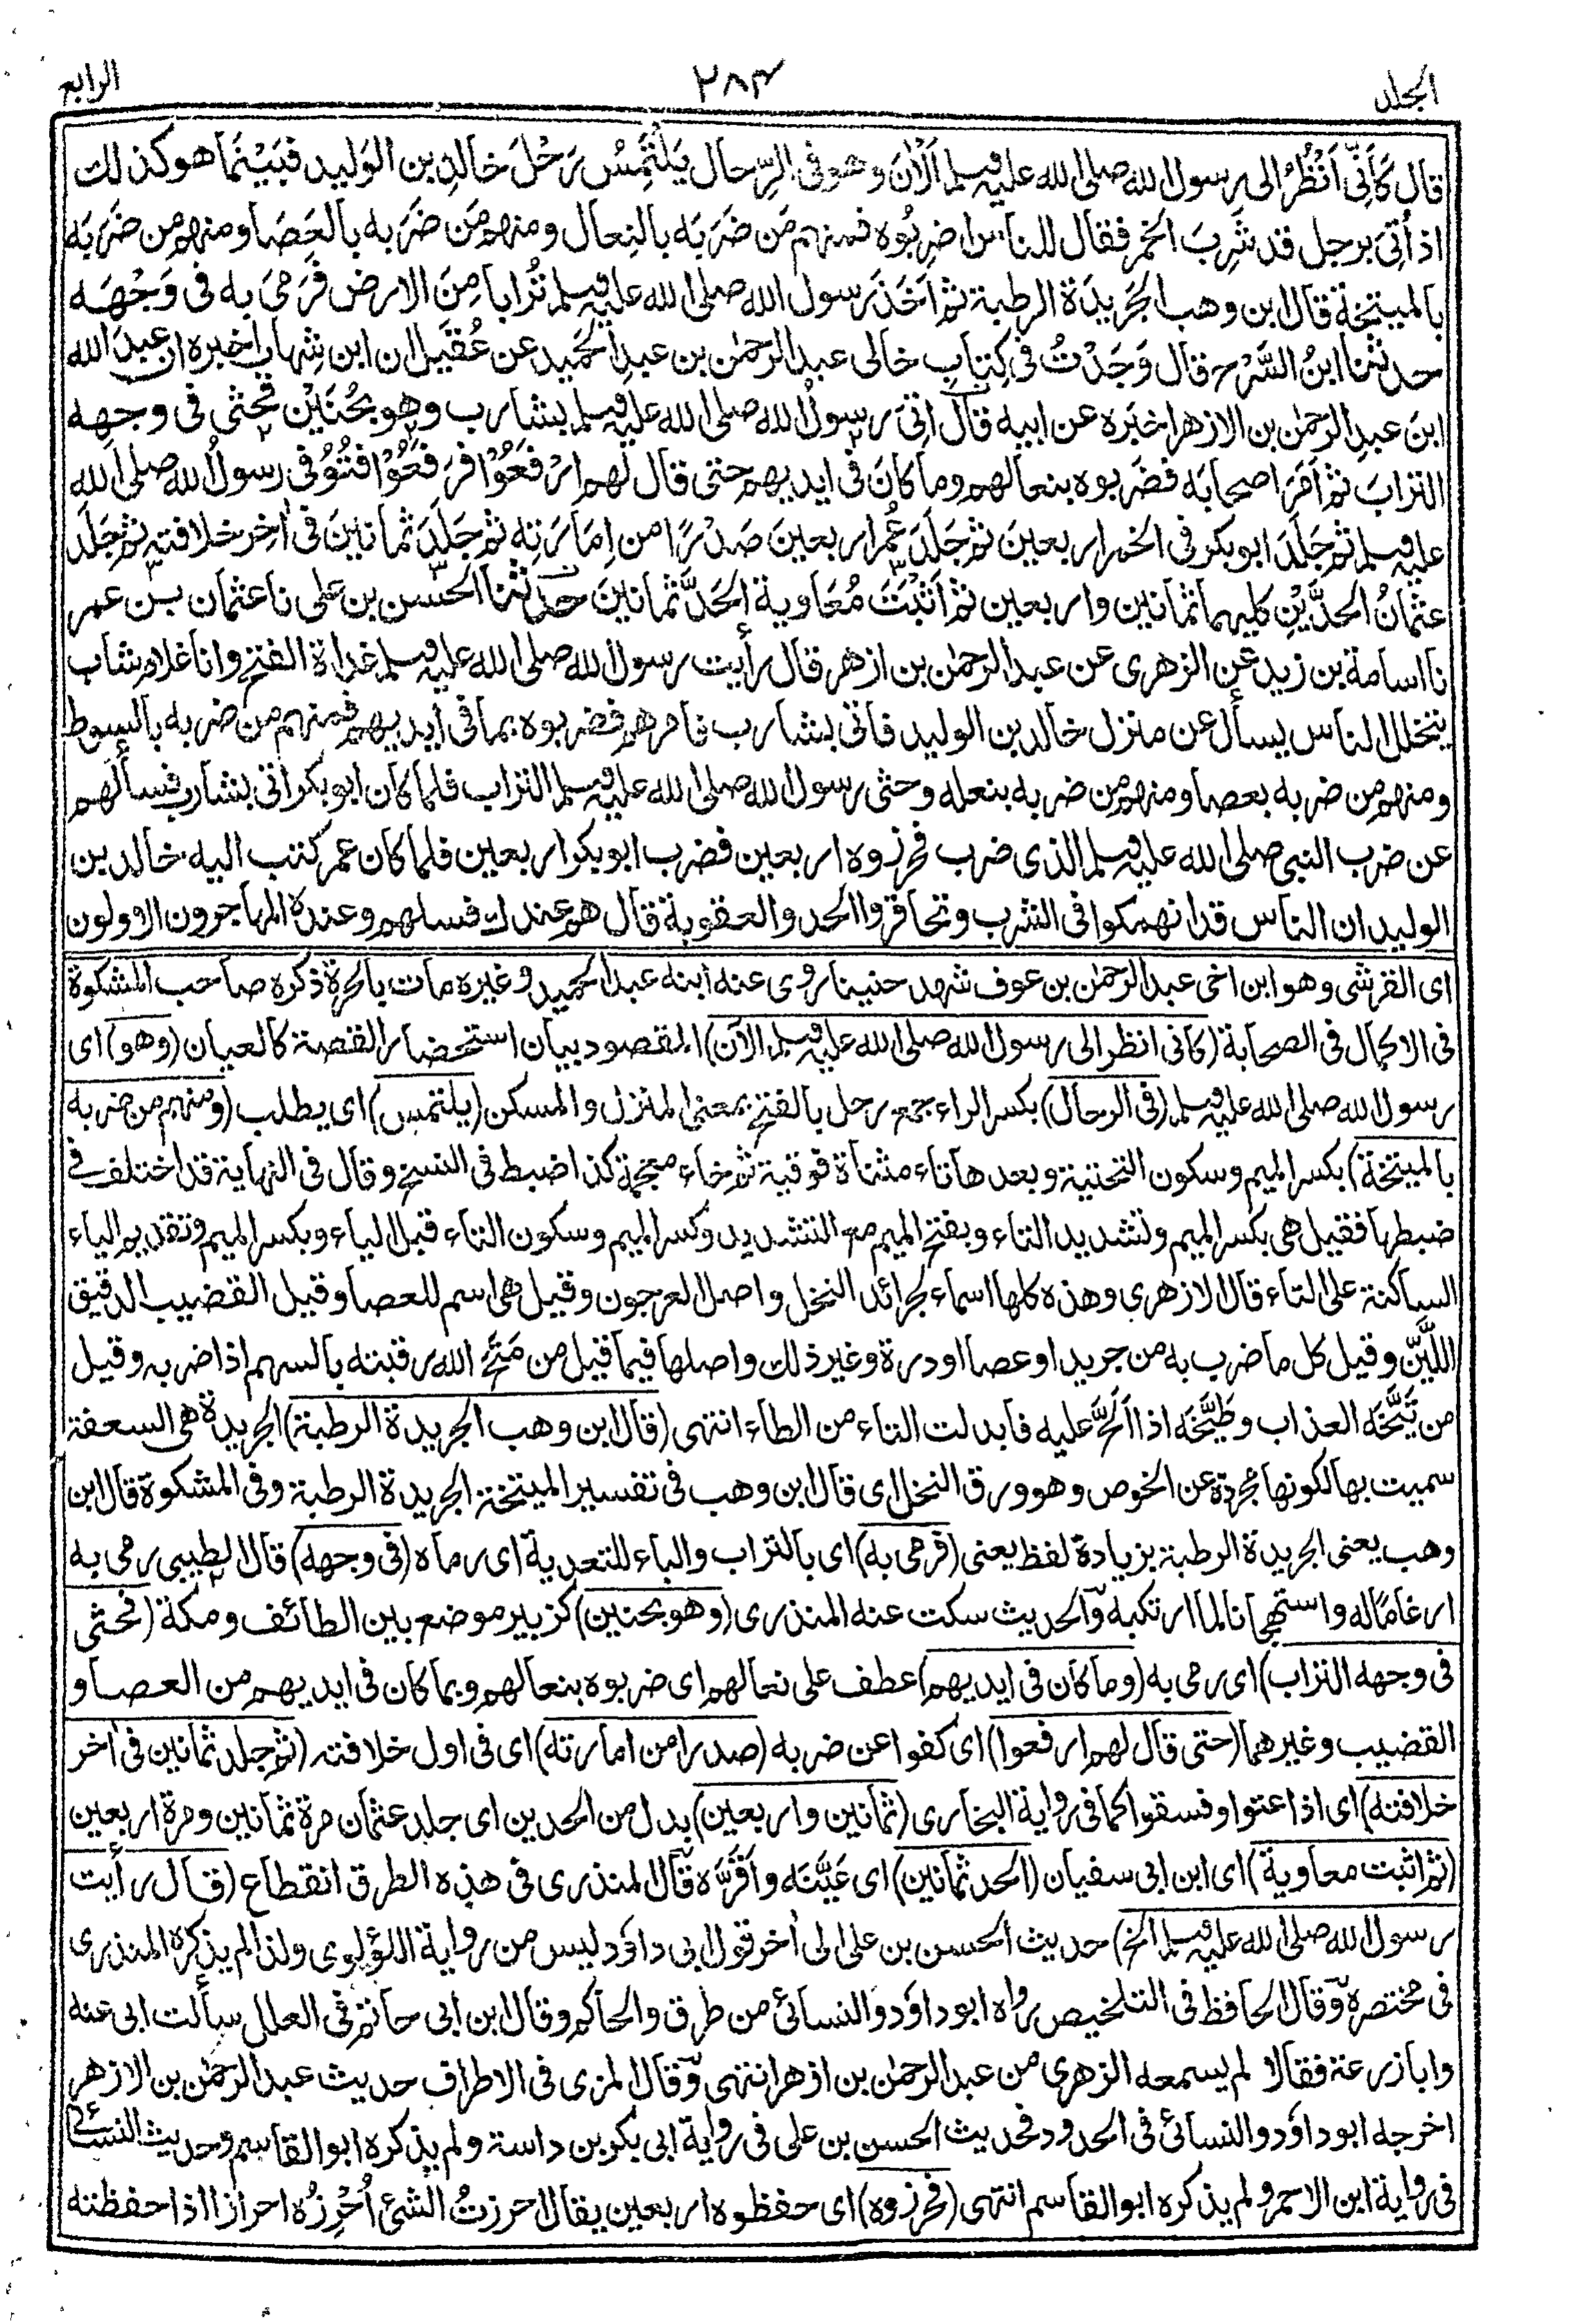 الجلد
٢٨٤
الرابع
قال كَأَنِّي اَنْظُرُ الى رسول الله صلى الله عليه وسلم اَلْاٰنَ وهو فى الرِّحال يَلْتَمِسُ رَحْلَ خالدِ بن الوَليد فبَيْنَما هو كذلك
اذ اُتِىَ برجل قد شَرِبَ الخمر فقال للناس اضرِبُوه فمنهم مَن ضَرَبَه بالنِعال ومنهم مَن ضَرَبه بالعَصا ومنهم من ضَرَبَه
بالمِيتَخة قال ابن وهب الجَريدَة الرطبة ثم اَخَذَ رسول الله صلى الله عليه وسلم تُرابا مِنَ الارض فَرَمىَ به فى وَجْهَه
حدثنا ابنُ السَّرْح قال وَجَدْتُ فى كِتابِ خالى عبد الرحمٰن بن عبدِ الحَميد عن عُقَيل ان ابن شِهاب اخبره ان عبدَ الله
ابنَ عبدِ الرحمٰن بن الازهر اخبَرَه عن ابيه قال اُتِىَ رسولُ الله صلى الله عليه وسلم بشارب وهو بحُنَيْن فحَثى فى وجهه
الترابَ ثم اَمَرَ اصحابَه فضَربوه بنعالهم وما كانَ فى ايديهم حتى قال لهم ارْفَعُوْا فرَفَعُوْا فتُوُفى رسولُ الله صلى الله
عليه وسلم ثم جَلَدَ ابو بكر فى الخمر اربعين ثم جَلَدَ عُمر اربعينَ صَدْرًا من اِمَارَتِه ثم جَلَدَ ثمانينَ فى اٰخِر خلافته ثم جَلَدَ
عثمانُ الحدَّيْنِ كليهما ثمانين واربعين ثم اَثْبَتَ مُعَاوية الحَدَّ ثمانينَ حدثنا الحسن بن على نا عثمان بن عمر
نا اسامة بن زيد عن الزهرى عن عبد الرحمٰن بن ازهر قال رأيت رسول الله صلى الله عليه وسلم غداة الفتح وانا غلام شاب
يتخلل الناس يسأل عن منزل خالد بن الوليد فاتى بشارب فامرهم فضربوه بما فى ايديهم فمنهم من ضربه بالسوط
ومنهم من ضربه بعصا ومنهم من ضربه بنعله وحثى رسول الله صلى الله عليه وسلم التراب فلما كان ابو بكر اتى بشارب فسألهم
عن ضرب النبى صلى الله عليه وسلم الذى ضرب فحرزوه اربعين فضرب ابو بكر اربعين فلما كان عمر كتب اليه خالد بن
الوليد ان الناس قد انهمكوا فى الشرب وتحاقروا الحد والعقوبة قال هم عندك فسلهم وعنده المهاجرون الاولون
اى القرشى وهو ابن اخى عبد الرحمٰن بن عوف شهد حنينا روى عنه ابنه عبد الحميد وغيره مات بالحرة ذكره صاحب المشكوة
فى الاكمال فى الصحابة (كانى انظر الى رسول الله صلى الله عليه وسلم الآن) المقصود بيان استحضار القصة كالعيان (وهو) اى
رسول الله صلى الله عليه وسلم (فى الرحال) بكسر الراء جمع رحل بالفتح بمعنى المنزل والمسكن (يلتمس) اى يطلب (ومنهم من ضربه
بالميتخة) بكسر الميم وسكون التحتية وبعدها تاء مثناة فوقية ثم خاء معجمة كذا ضبط فى النسخ وقال فى النهاية قد اختلف فى
ضبطها فقيل هى بكسر الميم وتشديد التاء وبفتح الميم مع التشديد وكسر الميم وسكون التاء قبل الياء وبكسر الميم وتقديم الياء
الساكنة على التاء قال الازهرى وهذه كلها اسماء لجرائد النخل واصل العرجون وقيل هى اسم للعصا وقيل القضيب الدقيق
اللَّيِّن وقيل كل ما ضرب به من جريد او عصا او درة وغير ذلك واصلها فيما قيل من مَتَخَ الله رقبته بالسهم اذا ضربه وقيل
من تَيَّخَه العذاب وطَيَّخَه اذا اَلَحَّ عليه فابدلت التاء من الطاء انتهى (قال ابن وهب الجريدة الرطبة) الجريدة هى السعفة
سميت بها لكونها مجردة عن الخوص وهو ورق النخل اى قال ابن وهب فى تفسير الميتخة الجريدة الرطبة وفى المشكوة قال ابن
وهب يعنى الجريدة الرطبة بزيادة لفظ يعنى (فرمى به) اى بالتراب والباء للتعدية اى رماه (فى وجهه) قال الطيبى رمى به
ارغاما له واستهجانا لما ارتكبه والحديث سكت عنه المنذرى (وهو بحنين) كزبير موضع بين الطائف ومكة (فحثى
فى وجهه التراب) اى رمى به (وما كان فى ايديهم) عطف على نعالهم اى ضربوه بنعالهم وبما كان فى ايديهم من العصا و
القضيب وغيرهما (حتى قال لهم ارفعوا) اى كفوا عن ضربه (صدرا من امارته) اى فى اول خلافته (ثم جلد ثمانين فى اٰخر
خلافته) اى اذا عتوا وفسقوا كما فى رواية البخارى (ثمانين واربعين) بدل من الحدين اى جلد عثمان مرة ثمانين ومرة اربعين
(ثم اثبت معاوية) اى ابن ابى سفيان (الحد ثمانين) اى عَيَّنَه واَقَرَّه قال المنذرى فى هذه الطرق انقطاع (قال رأيت
رسول الله صلى الله عليه وسلم الخ) حديث الحسن بن على الى اٰخر قول ابى داؤد ليس من رواية اللؤلوى ولذا لم يذكره المنذرى
فى مختصره وقال الحافظ فى التلخيص رواه ابو داؤد والنسائى من طرق والحاكم وقال ابن ابى حاتم فى العلل سألت ابى عنه
وابا زرعة فقالا لم يسمعه الزهرى من عبد الرحمٰن بن ازهر انتهى وقال المزى فى الاطراف حديث عبد الرحمٰن بن الازهر
اخرجه ابو داؤد والنسائى فى الحدود فحديث الحسن بن على فى رواية ابى بكر بن داسة ولم يذكره ابو القاسم وحديث النسائى
فى رواية ابن الاحمر ولم يذكره ابو القاسم انتهى (فحرزوه) اى حفظوه اربعين يقال احرزتُ الشئ اُحْرِزُه احرازا اذا حفظته